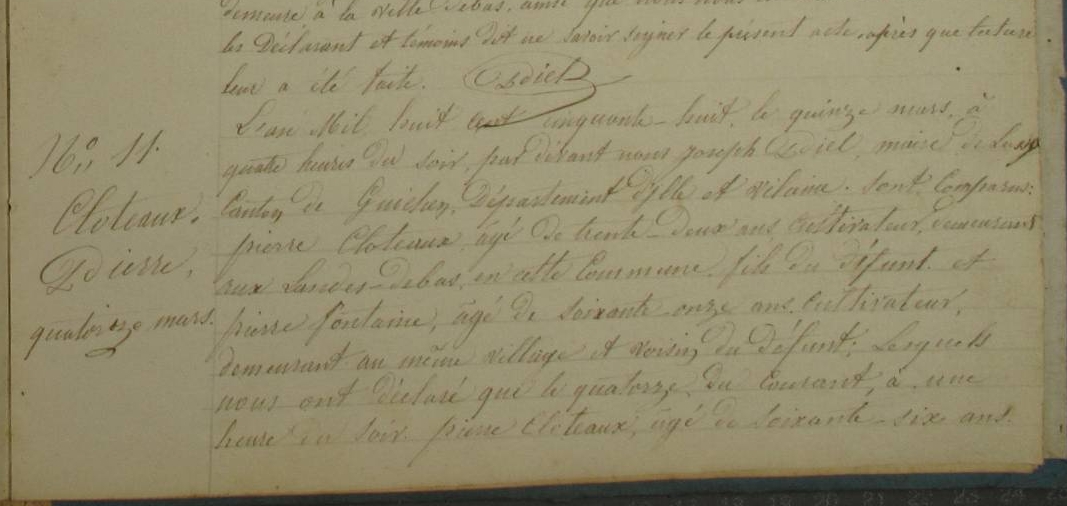 demeure à la ville debas, ainsi que nous nous
les Déclarant et témoins dit ne savoir signer le présent acte, après que lecture
leur a été faite. Ddiel
L'an Mil huit cent cinquante-huit, le quinze mars, à
N° 11.
quatre heures du soir, par devant nous Joseph Ddiel, maire de
Canton de Guichen, Département d'Ille et Vilaine. sont Comparus:
Cloteaux.
pierre Cloteaux, âgé de trente-deux ans Cultivateur, demeurant
Pierre.
aux Landes-debas, en cette Commune, fils du défunt. et
quatorze mars.
pierre fontaine, âgé de soixante onze ans. Cultivateur,
demeurant au même village et voisin du défunt; Lesquels
nous ont déclaré que le quatorze du Courant, à une
heure du soir. pierre Cloteaux, âgé de soixante-six ans.